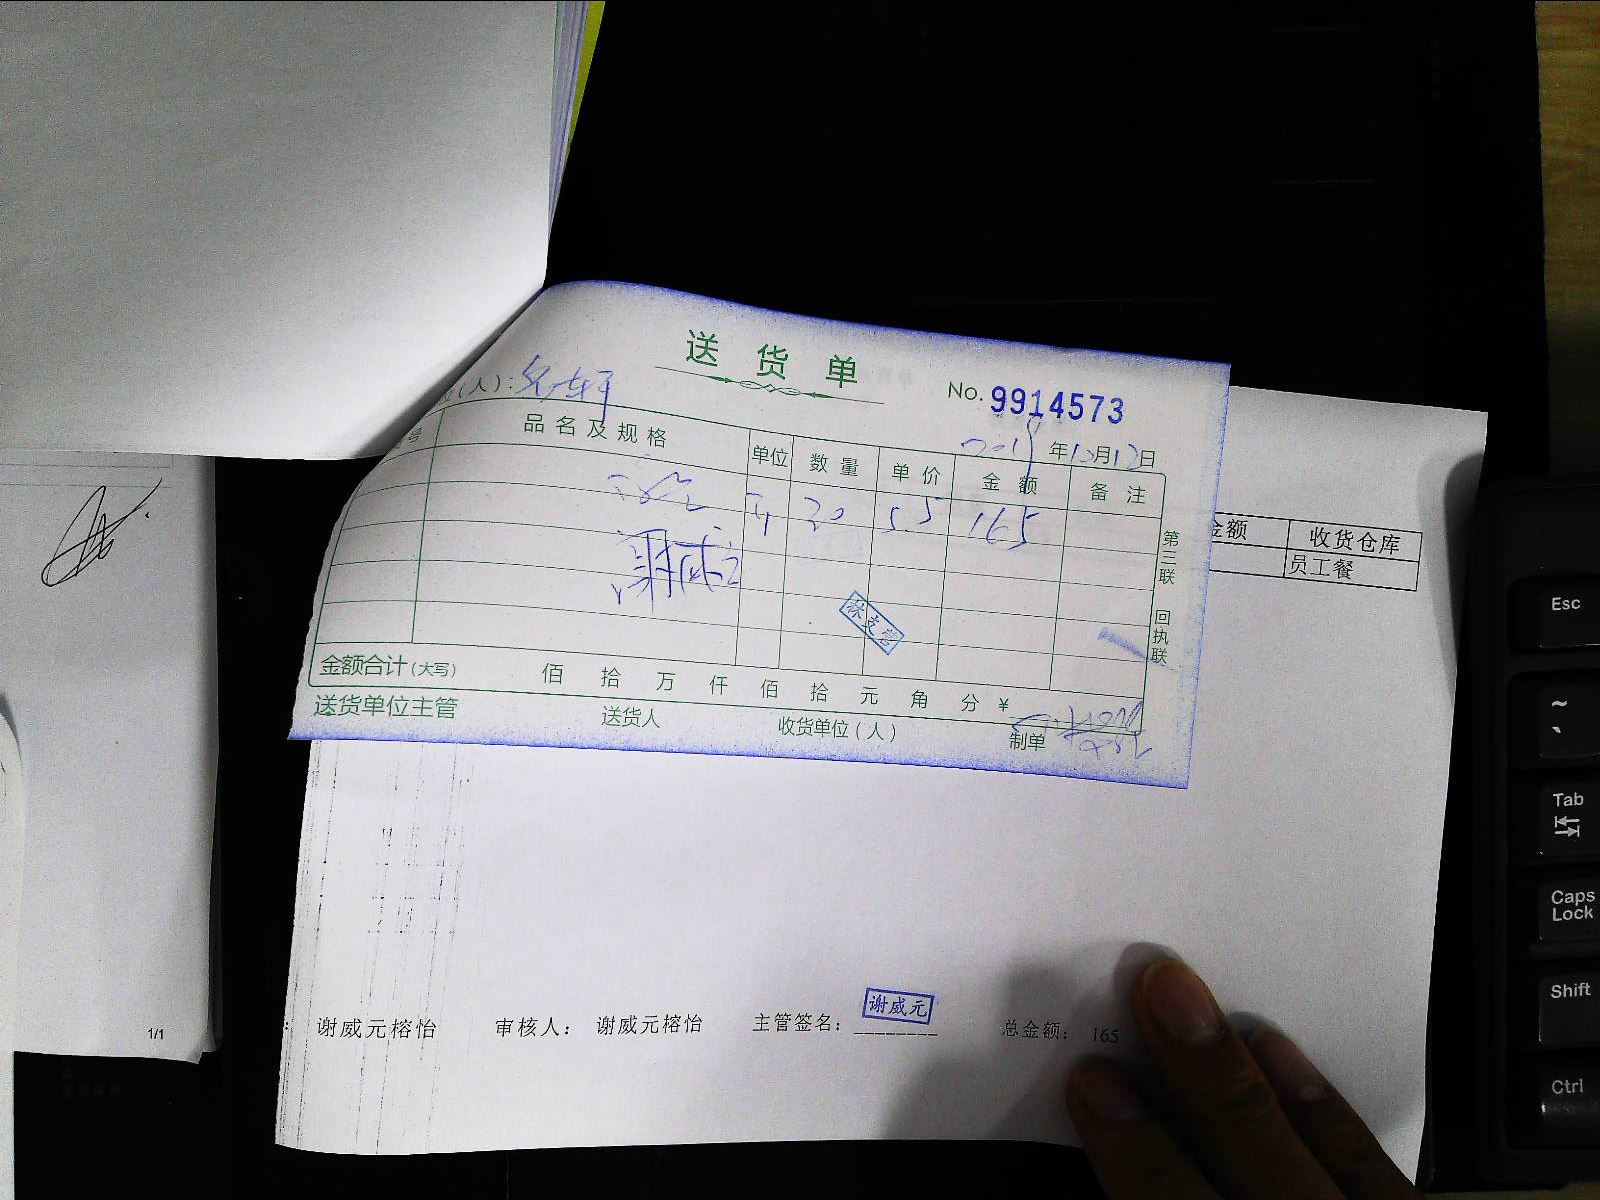 送货单
No. 9914573
(人):
2019年10月12日
号 品名及规格 单位 数量 单价 金额 备注
斤 30 5.5 165
谢威元
林支营
第三联 回执联
金额合计(大写) 佰 拾 万 仟 佰 拾 元 角 分 ¥
送货单位主管 送货人 收货单位(人) 制单
金额 收货仓库
员工餐
谢威元榕怡 审核人: 谢威元榕怡 主管签名: 谢威元 总金额: 165
1/1
Esc
~
`
Tab
Caps Lock
Shift
Ctrl